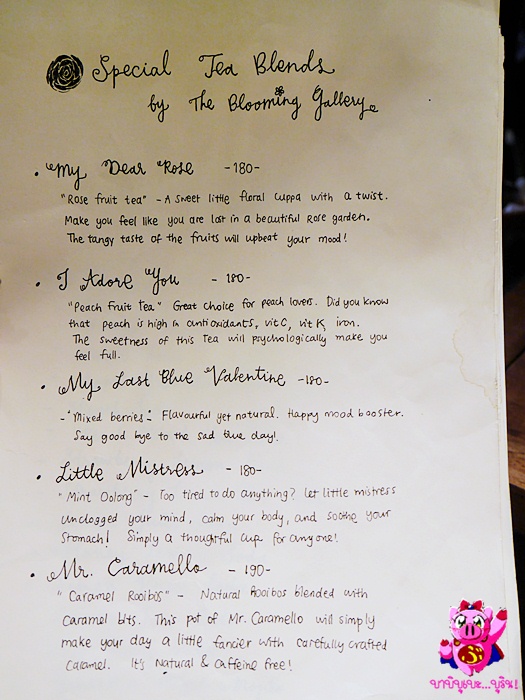 Special Tea Blends
by The Blooming Gallery
• My Dear Rose -180-
"Rose fruit tea" - A sweet little floral cuppa with a twist.
Make you feel like you are lost in a beautiful Rose garden.
The tangy taste of the fruits will upbeat your mood!
• I Adore You -180-
"Peach Fruit Tea" Great choice for peach lovers. Did you know
that peach is high in antioxidants, vit C, vit K, iron.
The sweetness of this Tea will psychologically make you
feel full.
• My Last Blue Valentine -180-
- "Mixed berries" - Flavourful yet natural. Happy mood booster.
Say good bye to the sad blue day!
• Little Mistress -180-
"Mint Oolong" - Too tired to do anything? Let little mistress
unclogged your mind, calm your body, and soothe your
stomach! Simply a thoughtful cup for anyone!
• Mr. Caramello -190-
"Caramel Rooibos" - Natural Rooibos blended with
Caramel bits. This pot of Mr. Caramello will simply
make your day a little fancier with carefully crafted
caramel. It's Natural & Caffeine free!